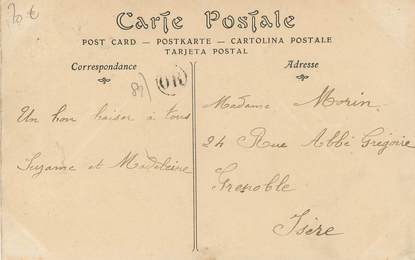 70 €
Carte Postale
POST CARD — POSTKARTE — CARTOLINA POSTALE
TARJETA POSTAL
Correspondance
Adresse
Un bon baiser à tous
Suzanne et Madeleine
Madame Morin
24 Rue Abbé Grégoire
Grenoble
Isère